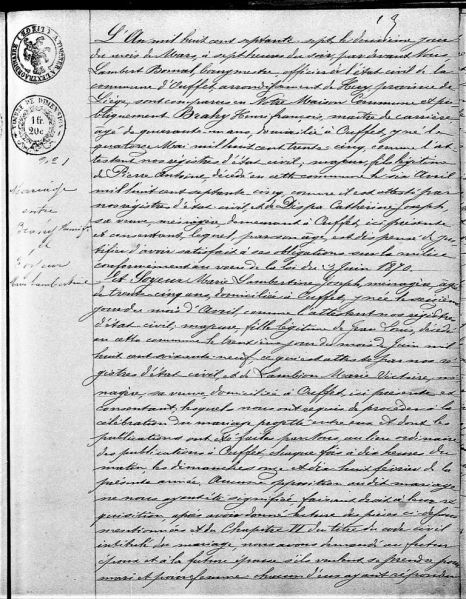 13
L'An mil huit cent septante sept le deuxième jour
du mois de Mars, à sept heures du soir, par devant Nous
Lambert Bomal, bourgmestre, officier de l'état civil de la
commune d'Ouffet, arrondissement de Huy, province de
Liège, sont comparus en Notre Maison Commune et pu-
bliquement Brahy Henri François, maître de carrière
âgé de quarante un ans, domicilié à Ouffet, y né le
quatorze Mai mil huit cent trente cinq, comme l'at-
testent nos registres d'état civil, majeur, fils légitime
de Pierre Antoine, décédé en cette commune le six Avril
mil huit cent septante cinq, comme il est attesté par
nos registres d'état civil, et de Dispa Catherine Joseph
sa veuve, ménagère, demeurant à Ouffet, ici présente
et consentant, lequel, par son âge, est dispensé de jus-
tifier d'avoir satisfait à ses obligations sur la milice
conformément au vœu de la loi du 3 Juin 1870.
Et Joyeux Marie Lambertine Joseph, ménagère, âgée
de trente cinq ans, domiciliée à Ouffet, y née le
jour du mois d'Avril, comme l'attestent nos registres
d'état civil, majeure, fille légitime de Jean Louis, décédé
en cette commune le trente un jour du mois de Juin mil
huit cent soixante neuf, ce qui est attesté par nos re-
gistres d'état civil, et de Lambion Marie Victoire, mé-
nagère, sa veuve domiciliée à Ouffet, ici présente et
consentant, lesquels nous ont requis de procéder à la
célébration du mariage projeté entre eux et dont les
publications ont été faites par Nous au lieu ordinaire
des publications à Ouffet, chaque fois à dix heures du
matin, les dimanches onze et dix huit février de la
présente année. Aucune opposition au dit mariage
ne nous ayant été signifiée, faisant droit à leur ré-
quisition, après avoir donné lecture des pièces ci-dessus
mentionnées et du Chapitre VI du titre du code civil
intitulé du mariage, nous avons demandé au futur
époux et à la future épouse s'ils veulent se prendre pour
mari et pour femme chacun d'eux ayant répondu
DE DIMENSION
1 fr
20c
Mariage
entre
Brahy Henri F.
et